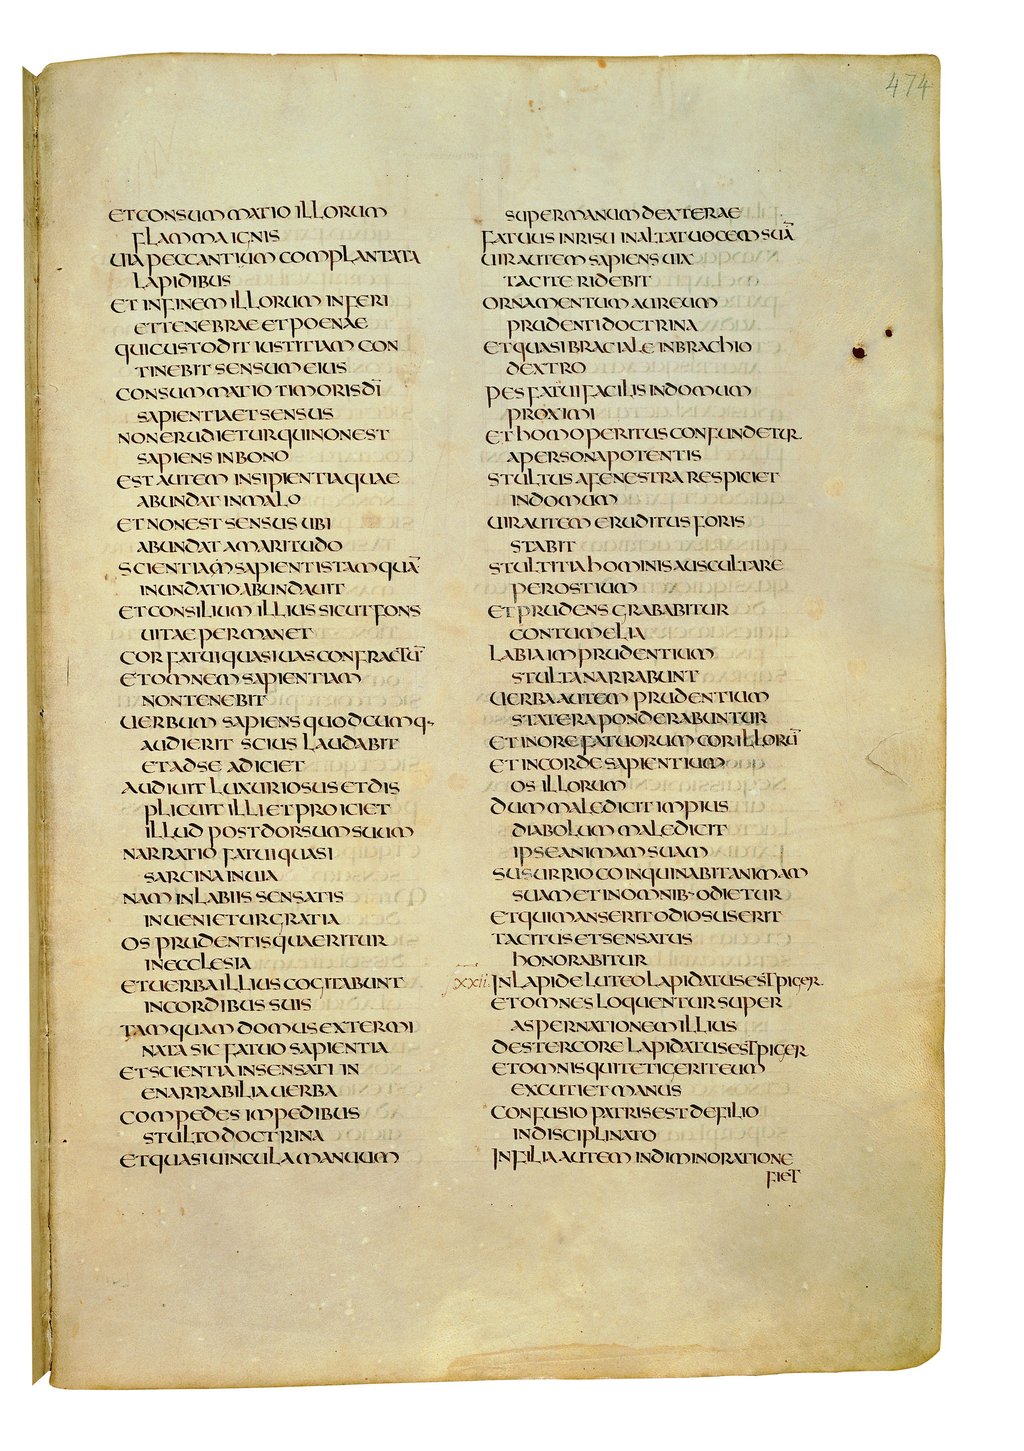 474
ET CONSUMMATIO ILLORUM
FLAMMA IGNIS
UIA PECCANTIUM COMPLANTATA
LAPIDIBUS
ET IN FINEM ILLORUM INFERI
ET TENEBRAE ET POENAE
QUI CUSTODIT IUSTITIAM CON
TINEBIT SENSUM EIUS
CONSUMMATIO TIMORIS DI
SAPIENTIA ET SENSUS
NON ERUDIETUR QUI NON EST
SAPIENS IN BONO
EST AUTEM INSIPIENTIA QUAE
ABUNDAT IN MALO
ET NON EST SENSUS UBI
ABUNDAT AMARITUDO
SCIENTIAM SAPIENTIS TAMQUĀ
INUNDATIO ABUNDAUIT
ET CONSILIUM ILLIUS SICUT FONS
UITAE PERMANET
COR FATUI QUASI UAS CONFRACTŪ
ET OMNEM SAPIENTIAM
NON TENEBIT
UERBUM SAPIENS QUODCUMQ·
AUDIERIT SCIUS LAUDABIT
ET AD SE ADICIET
AUDIUIT LUXURIOSUS ET DIS
PLICUIT ILLI ET PROICIET
ILLUD POST DORSUM SUUM
NARRATIO FATUI QUASI
SARCINA IN UIA
NAM IN LABIIS SENSATIS
INUENIETUR GRATIA
OS PRUDENTIS QUAERITUR
IN ECCLESIA
ET UERBA ILLIUS COGITABUNT
IN CORDIBUS SUIS
TAMQUAM DOMUS EXTERMI
NATA SIC FATUO SAPIENTIA
ET SCIENTIA INSENSATI IN
ENARRABILIA UERBA
COMPEDES IM PEDIBUS
STULTO DOCTRINA
ET QUASI UINCULA MANUUM
SUPER MANUM DEXTERAE
FATUUS IN RISU INALTAT UOCEM SUĀ
UIR AUTEM SAPIENS UIX
TACITE RIDEBIT
ORNAMENTUM AUREUM
PRUDENTI DOCTRINA
ET QUASI BRACIALE IN BRACHIO
DEXTRO
PES FATUI FACILIS IN DOMUM
PROXIMI
ET HOMO PERITUS CONFUNDETUR
A PERSONA POTENTIS
STULTUS A FENESTRA RESPICIET
IN DOMUM
UIR AUTEM ERUDITUS FORIS
STABIT
STULTITIA HOMINIS AUSCULTARE
PER OSTIUM
ET PRUDENS GRABABITUR
CONTUMELIA
LABIA IMPRUDENTIUM
STULTA NARRABUNT
UERBA AUTEM PRUDENTIUM
STATERA PONDERABUNTUR
ET IN ORE FATUORUM COR ILLORŪ
ET IN CORDE SAPIENTIUM
OS ILLORUM
DUM MALEDICIT IMPIUS
DIABOLUM MALEDICIT
IPSE ANIMAM SUAM
SUSURRIO COINQUINABIT ANIMAM
SUAM ET IN OMNIB· ODIETUR
ET QUI MANSERIT ODIOSUS ERIT
TACITUS ET SENSATUS
HONORABITUR
xxii. IN LAPIDE LUTEO LAPIDATUS EST PIGER
ET OMNES LOQUENTUR SUPER
ASPERNATIONEM ILLIUS
DE STERCORE LAPIDATUS EST PIGER
ET OMNIS QUI TETIGERIT EUM
EXCUTIET MANUS
CONFUSIO PATRIS EST DE FILIO
INDISCIPLINATO
IN FILIA AUTEM IN DIMINORATIONE
FIET